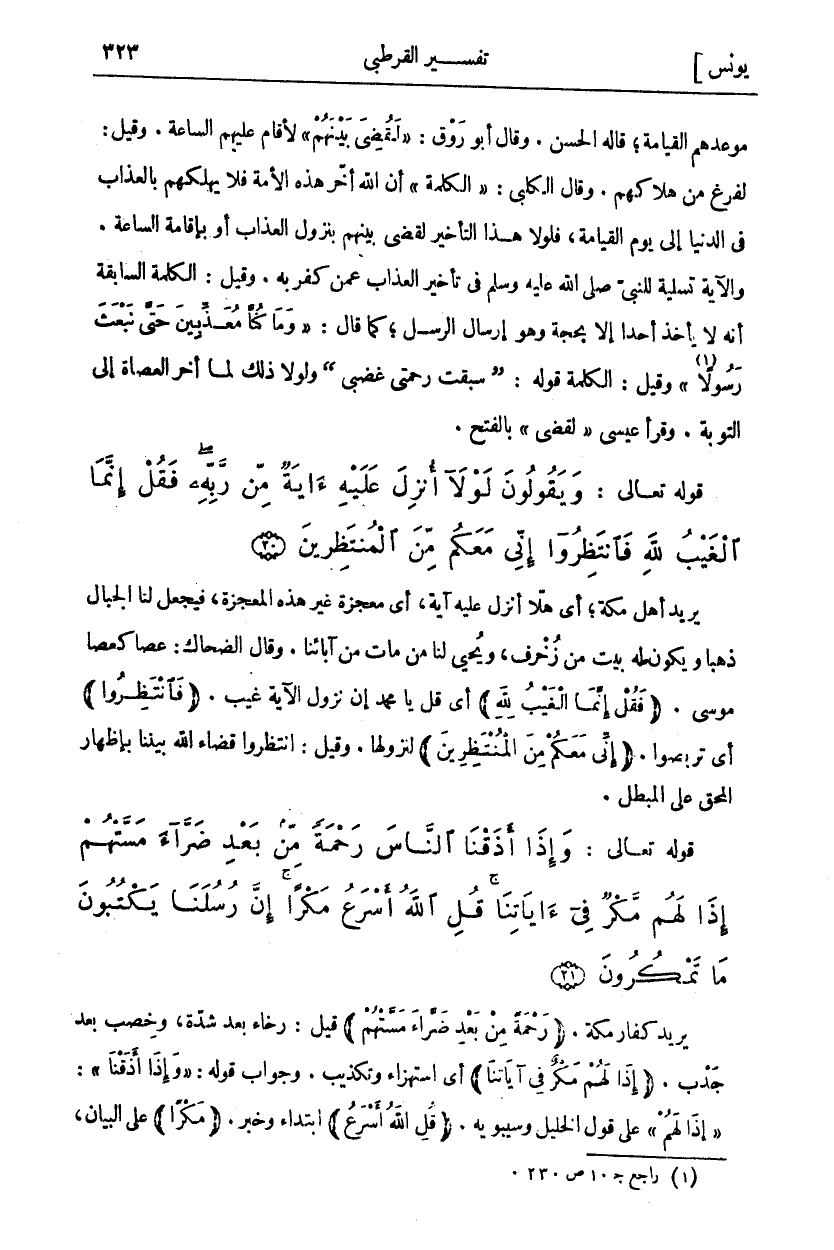 يونس] تفســـير القرطبى ٣٢٣
موعدهم القيامة؛ قاله الحسن . وقال أبو رَوْق : «لَقُضِىَ بَيْنَهُمْ» لأقام عليهم الساعة . وقيل:
لفرغ من هلاكهم . وقال الكلبى : « الكلمة » أن الله أخّر هذه الأمة فلا يهلكهم بالعذاب
فى الدنيا إلى يوم القيامة، فلولا هــذا التأخير لقضى بينهم بنزول العذاب أو بإقامة الساعة .
والآية تسلية للنبىّ صلى الله عليه وسلم فى تأخير العذاب عمن كفر به . وقيل : الكلمة السابقة
أنه لا يأخذ أحدا إلا بحجة وهو إرسال الرســل ؛ كما قال : « وَمَا كُنَّا مُعَــذِّبِينَ حَتَّى نَبْعَثَ
رَسُولًا (١) » وقيل : الكلمة قوله : ” سبقت رحمتى غضبى “ ولولا ذلك لمــا أخر العصاة إلى
التوبة . وقرأ عيسى « لقضى » بالفتح .
قوله تعــالى : وَيَقُولُونَ لَوْلَآ أُنزِلَ عَلَيْهِ ءَايَةٌ مِّن رَّبِّهِۦ فَقُلْ إِنَّمَا
ٱلْغَيْبُ لِلَّهِ فَٱنتَظِرُوٓا إِنِّى مَعَكُم مِّنَ ٱلْمُنتَظِرِينَ ٢٠
يريد أهل مكة؛ أى هلّا أنزل عليه آية، أى معجزة غير هذه المعجزة، فيجعل لنا الجبال
ذهبا ويكون له بيت من زُخْرف، ويُحيى لنا من مات من آبائنا . وقال الضحاك: عصا كعصا
موسى . ﴿ فَقُلْ إِنَّمَــا الْغَيْبُ لِلَّهِ ﴾ أى قل يا محمد إن نزول الآية غيب . ﴿ فَٱنْتَظِــرُوا ﴾
أى تربصوا . ﴿ إِنِّى مَعَكُمْ مِنَ الْمُنْتَظِرِينَ ﴾ لنزولها . وقيل : انتظروا قضاء الله بيننا بإظهار
المحق على المبطل .
قوله تعــالى : وَإِذَا أَذَقْنَا ٱلنَّــاسَ رَحْمَةً مِّنۢ بَعْـدِ ضَرَّآءَ مَسَّتْهُــمْ
إِذَا لَهُم مَّكْرٌ فِىٓ ءَايَاتِنَا ۚ قُلِ ٱللَّهُ أَسْرَعُ مَكْرًا ۚ إِنَّ رُسُلَنَــا يَكْتُبُونَ
مَا تَمْكُرُونَ ٢١
يريد كفار مكة . ﴿ رَحْمَةً مِنْ بَعْدِ ضَرَّاءَ مَسَّتْهُمْ ﴾ قيل : رخاء بعد شدّة، وخصب بعد
جَدْب . ﴿ إِذَا لَهُمْ مَكْرٌ فِى آيَاتِنَا ﴾ أى استهزاء وتكذيب . وجواب قوله : «وَإِذَا أَذَقْنَا » :
« إِذَا لَهُمْ » على قول الخليل وسيبويه . ﴿ قُلِ اللَّهُ أَسْرَعُ ﴾ ابتداء وخبر . ﴿ مَكْرًا ﴾ على البيان،
(١) راجع جـ ١٠ ص ٢٣٠ .